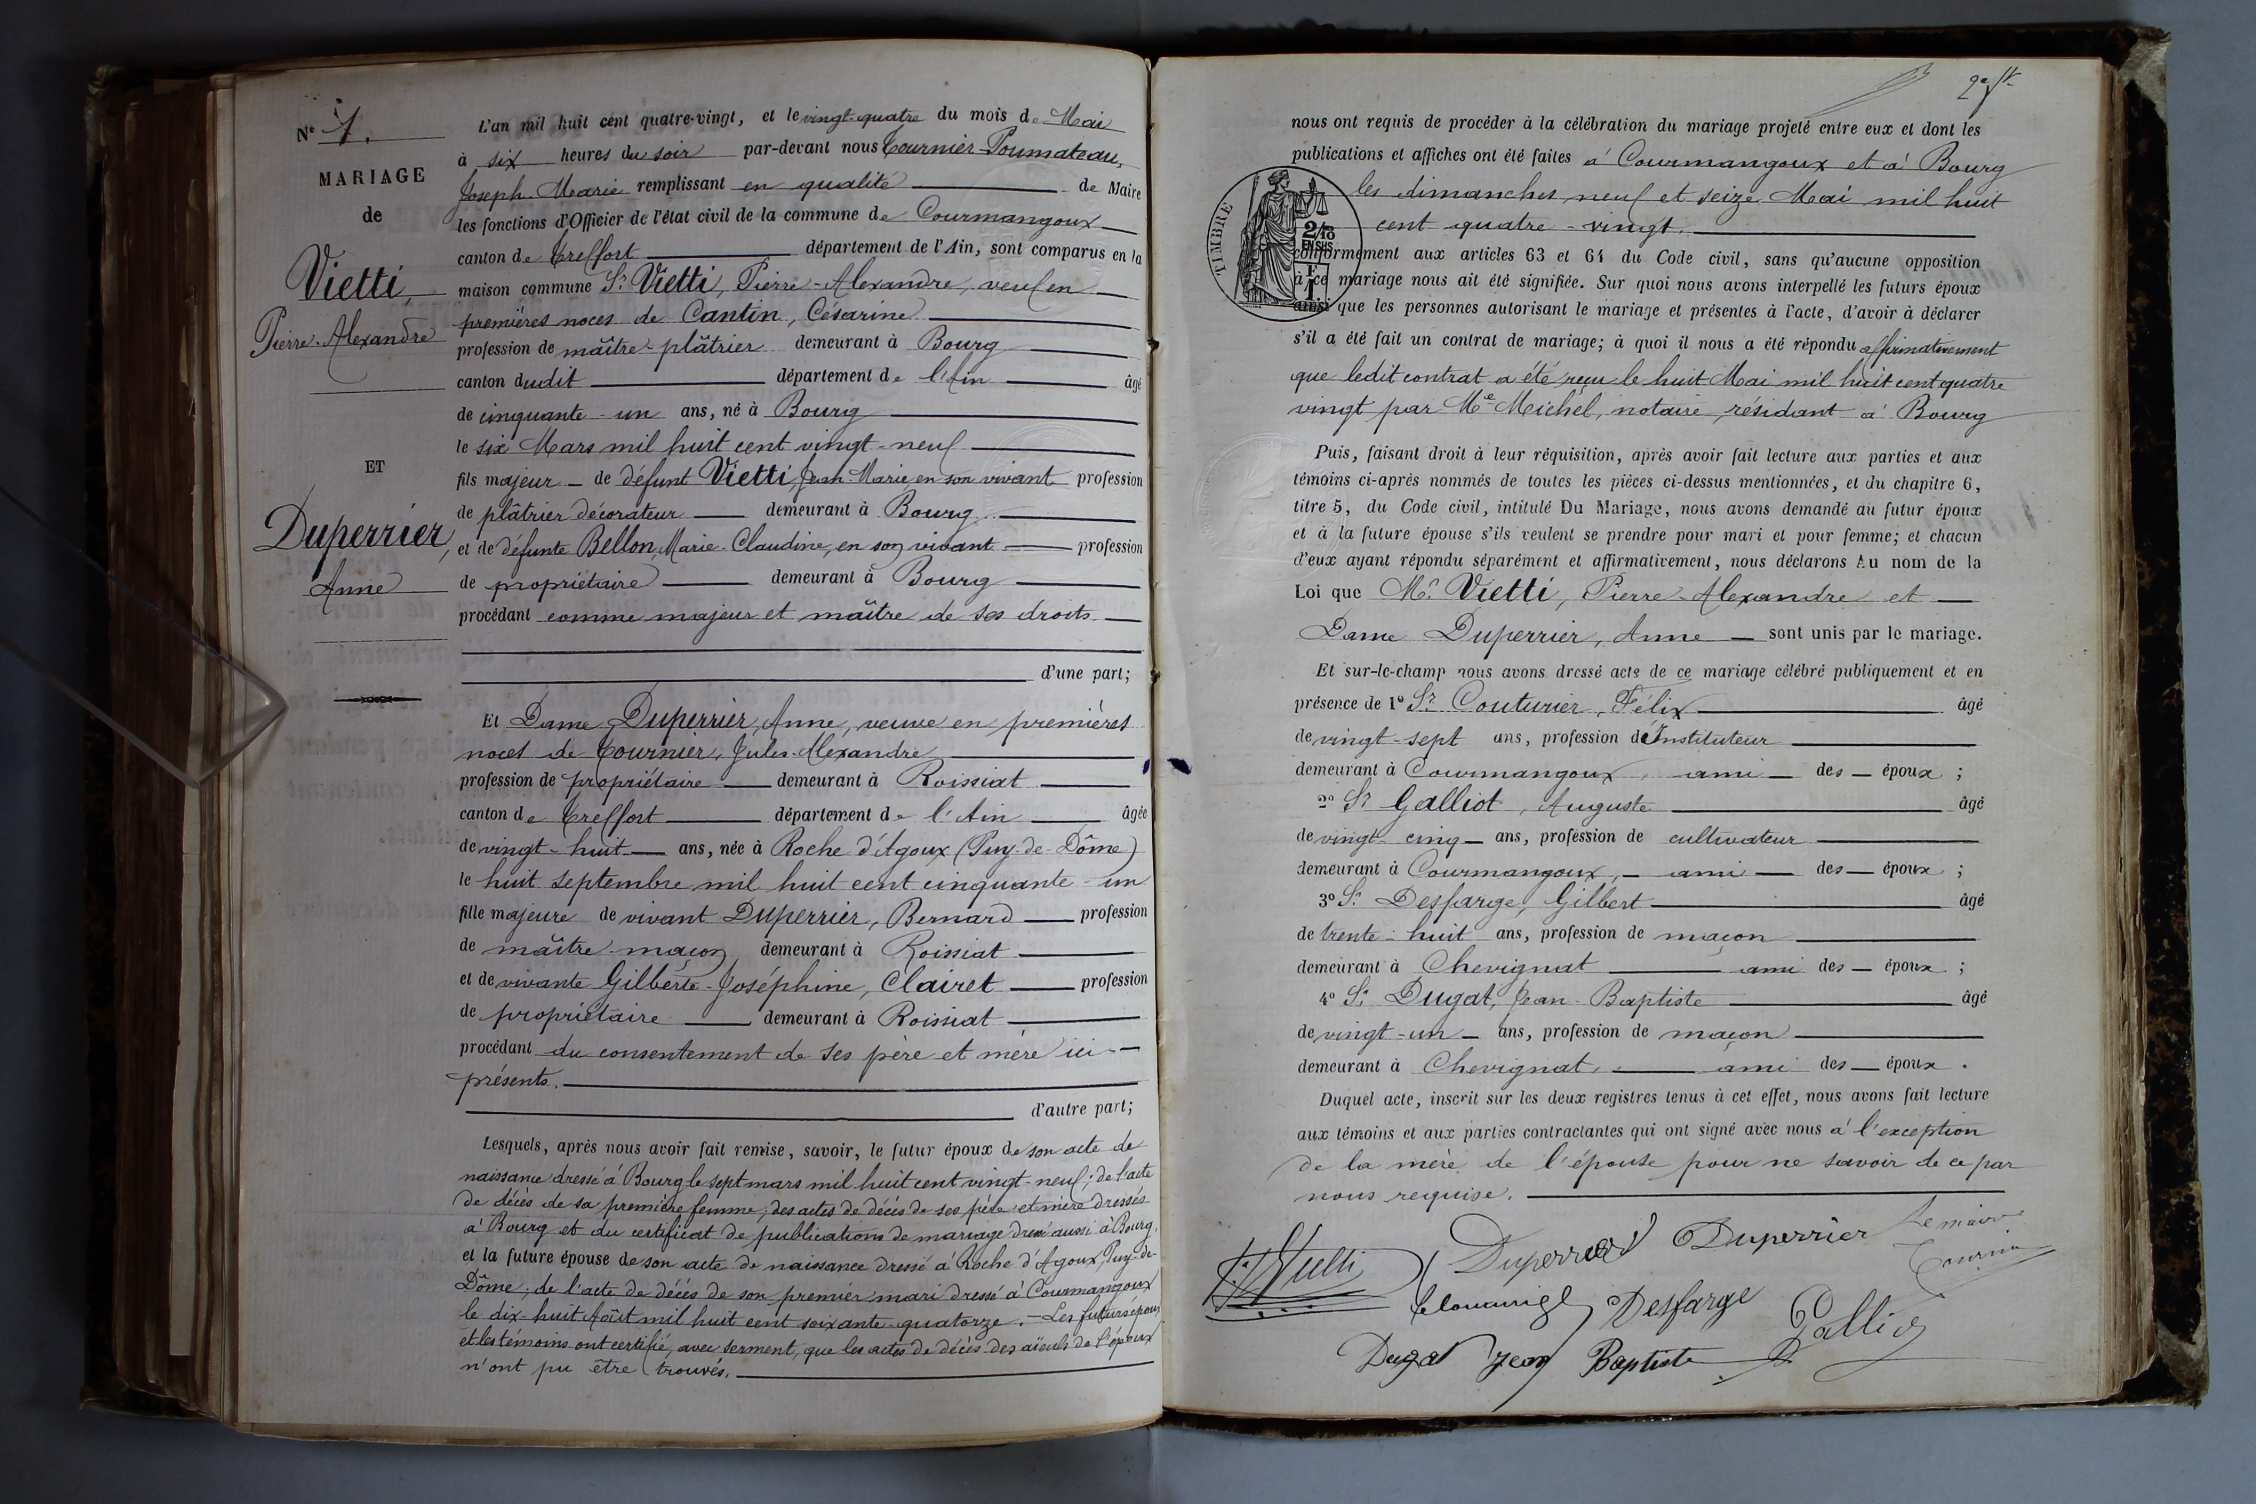 N° 4.
MARIAGE
de
Vietti,
Pierre-Alexandre
ET
Duperrier,
Anne
L'an mil huit cent quatre-vingt, et le vingt-quatre du mois de Mai
à six heures du soir par-devant nous Tournier-Poumateau,
Joseph-Marie remplissant en qualité de Maire
les fonctions d'Officier de l'état civil de la commune de Courmangoux
canton de Treffort département de l'Ain, sont comparus en la
maison commune Sr Vietti, Pierre-Alexandre, veuf en
premières noces de Cantin, Césarine
profession de maître-plâtrier demeurant à Bourg
canton dudit département de l'Ain âgé
de cinquante-un ans, né à Bourg
le six Mars mil huit cent vingt-neuf
fils majeur de défunt Vietti, Jean-Marie en son vivant profession
de plâtrier décorateur demeurant à Bourg
et de défunte Bellon, Marie-Claudine, en son vivant profession
de propriétaire demeurant à Bourg
procédant comme majeur et maître de ses droits
d'une part;
Et Dame Duperrier, Anne, veuve en premières
noces de Tournier, Jules-Alexandre
profession de propriétaire demeurant à Roissiat
canton de Treffort département de l'Ain âgée
de vingt-huit ans, née à Roche d'Agoux (Puy-de-Dôme)
le huit septembre mil huit cent cinquante-un
fille majeure de vivant Duperrier, Bernard profession
de maître-maçon demeurant à Roissiat
et de vivante Gilberte-Joséphine, Clairet profession
de propriétaire demeurant à Roissiat
procédant du consentement de ses père et mère ici-
présents.
d'autre part;
Lesquels, après nous avoir fait remise, savoir, le futur époux de son acte de
naissance dressé à Bourg le sept mars mil huit cent vingt-neuf; de l'acte
de décès de sa première femme; des actes de décès de ses père et mère dressés
à Bourg et du certificat de publications de mariage dressé aussi à Bourg,
et la future épouse de son acte de naissance dressé à Roche d'Agoux, Puy-de-
Dôme; de l'acte de décès de son premier mari dressé à Courmangoux
le dix-huit Août mil huit cent soixante-quatorze. - Les futurs époux
et les témoins ont certifié, avec serment, que les actes de décès des aïeuls de l'époux
n'ont pu être trouvés.
nous ont requis de procéder à la célébration du mariage projeté entre eux et dont les
publications et affiches ont été faites à Courmangoux et à Bourg
les dimanches neuf et seize Mai mil huit
cent quatre-vingt.
TIMBRE
2/10
EN SUS
conformément aux articles 63 et 64 du Code civil, sans qu'aucune opposition
à ce mariage nous ait été signifiée. Sur quoi nous avons interpellé les futurs époux
ainsi que les personnes autorisant le mariage et présentes à l'acte, d'avoir à déclarer
s'il a été fait un contrat de mariage; à quoi il nous a été répondu affirmativement
que ledit contrat a été reçu le huit Mai mil huit cent quatre
vingt par Me Michel, notaire, résidant à Bourg
Puis, faisant droit à leur réquisition, après avoir fait lecture aux parties et aux
témoins ci-après nommés de toutes les pièces ci-dessus mentionnées, et du chapitre 6,
titre 5, du Code civil, intitulé Du Mariage, nous avons demandé au futur époux
et à la future épouse s'ils veulent se prendre pour mari et pour femme; et chacun
d'eux ayant répondu séparément et affirmativement, nous déclarons Au nom de la
Loi que Mr Vietti, Pierre-Alexandre et
Dame Duperrier, Anne sont unis par le mariage.
Et sur-le-champ nous avons dressé acte de ce mariage célébré publiquement et en
présence de 1° Sr Couturier, Félix âgé
de vingt-sept ans, profession d'Instituteur
demeurant à Courmangoux, ami des époux ;
2° Sr Galliot, Auguste âgé
de vingt-cinq ans, profession de cultivateur
demeurant à Courmangoux, ami des époux ;
3° Sr Desfarge, Gilbert âgé
de trente-huit ans, profession de maçon
demeurant à Chevignat ami des époux ;
4° Sr Dugat, Jean-Baptiste âgé
de vingt-un ans, profession de maçon
demeurant à Chevignat, ami des époux .
Duquel acte, inscrit sur les deux registres tenus à cet effet, nous avons fait lecture
aux témoins et aux parties contractantes qui ont signé avec nous à l'exception
de la mère de l'épouse pour ne savoir de ce par
nous requise.
Vietti Duperrier Duperrier Le maire
Desfarge Galliot
Dugat Jean Baptiste